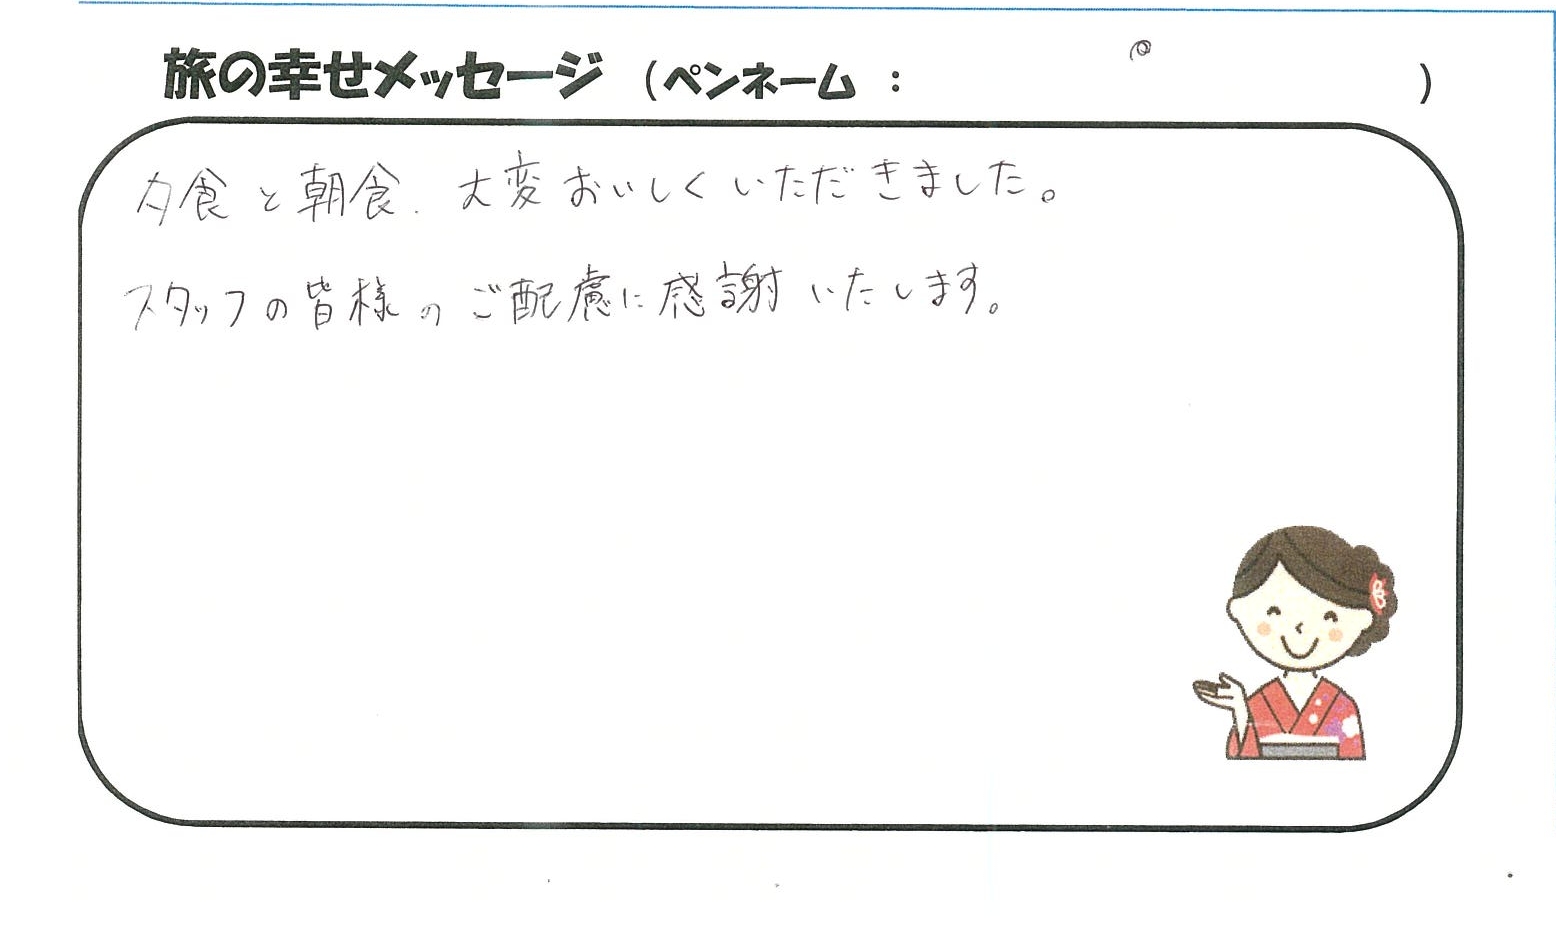 旅の幸せメッセージ （ペンネーム ： ）
夕食と朝食、大変おいしくいただきました。
スタッフの皆様のご配慮に感謝いたします。